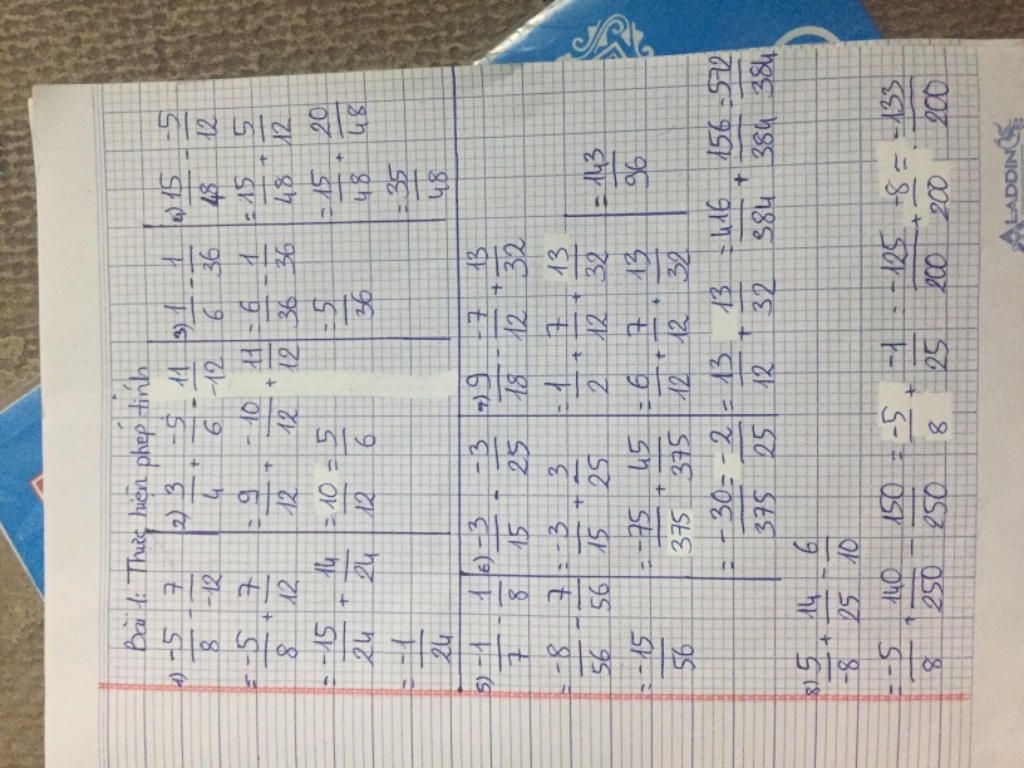 Bài 1: Thực hiện phép tính
1) -5/8 - 7/-12
= -5/8 + 7/12
= -15/24 + 14/24
= -1/24
2) 3/4 + -5/6 - 11/-12
= 9/12 + -10/12 + 11/12
= 10/12 = 5/6
3) 1/6 - 1/36
= 6/36 - 1/36
= 5/36
4) 15/48 - -5/12
= 15/48 + 5/12
= 15/48 + 20/48
= 35/48
5) -1/7 - 1/8
= -8/56 - 7/56
= -15/56
6) -3/15 - -3/25
= -3/15 + 3/25
= -75/375 + 45/375
= -30/375 = -2/25
7) 9/18 - -7/12 + 13/32
= 1/2 + 7/12 + 13/32
= 6/12 + 7/12 + 13/32
= 13/12 + 13/32 = 416/384 + 156/384 = 572/384
= 143/96
8) 5/-8 + 14/25 - 6/10
= -5/8 + 140/250 - 150/250 = -5/8 + -1/25 = -125/200 + -8/200 = -133/200
ALADDIN